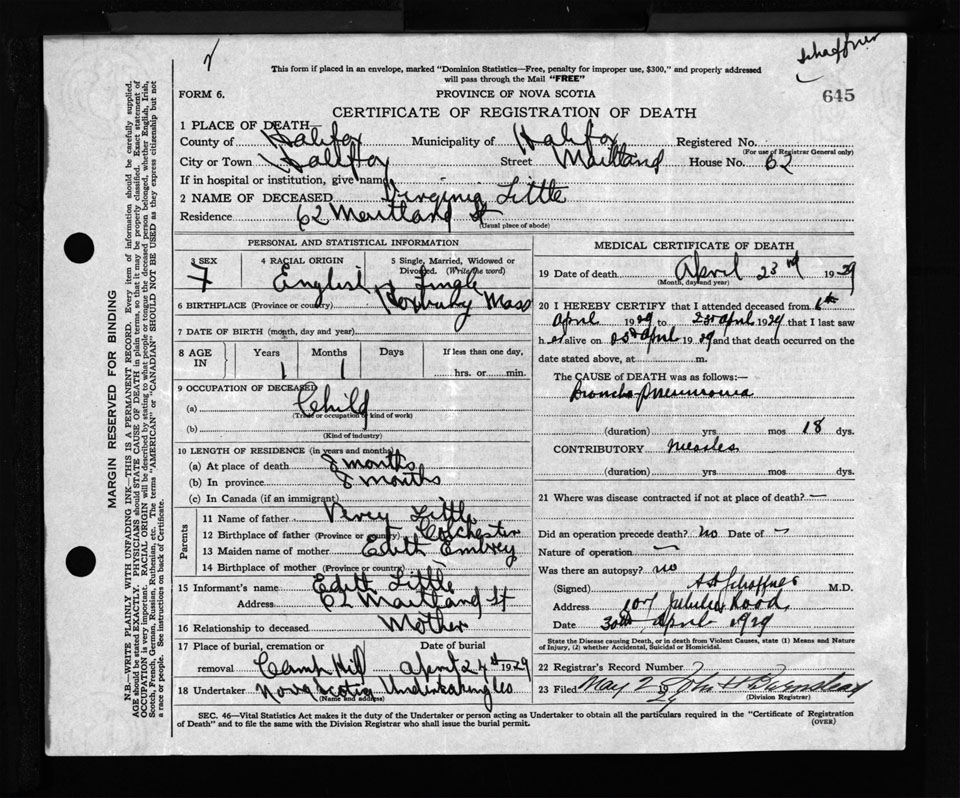 Schaffner
This form if placed in an envelope, marked "Dominion Statistics—Free, penalty for improper use, $300," and properly addressed
will pass through the Mail "FREE"
FORM 6. PROVINCE OF NOVA SCOTIA 645
CERTIFICATE OF REGISTRATION OF DEATH
1 PLACE OF DEATH—
County of Halifax Municipality of Halifax Registered No.
(For use of Registrar General only)
City or Town Halifax Street Maitland House No. 62
If in hospital or institution, give name
2 NAME OF DECEASED Virginia Little
Residence 62 Maitland St
(Usual place of abode)
PERSONAL AND STATISTICAL INFORMATION
3 SEX 4 RACIAL ORIGIN 5 Single, Married, Widowed or
Divorced. (Write the word)
F English Single
6 BIRTHPLACE (Province or county) Roxbury Mass
7 DATE OF BIRTH (month, day and year)
8 AGE IN Years Months Days If less than one day,
1 1 hrs. or min.
9 OCCUPATION OF DECEASED
(a) Child
(Trade or occupation or kind of work)
(b)
(Kind of industry)
10 LENGTH OF RESIDENCE (in years and months)
(a) At place of death 8 months
(b) In province 8 months
(c) In Canada (if an immigrant)
Parents
11 Name of father Little
12 Birthplace of father (Province or country) Colchester
13 Maiden name of mother Edith Embrey
14 Birthplace of mother (Province or country)
15 Informant's name Edith Little
Address 62 Maitland St
16 Relationship to deceased Mother
17 Place of burial, cremation or Date of burial
removal Camp Hill April 24th 1929
18 Undertaker Nova Scotia Undertaking Co
(Name and address)
MEDICAL CERTIFICATE OF DEATH
19 Date of death April 23rd 1929
(Month, day and year)
20 I HEREBY CERTIFY that I attended deceased from 6th
April 1929 to 23rd April 1929 that I last saw
her alive on April 1929 and that death occurred on the
date stated above, at m.
The CAUSE of DEATH was as follows:—
Broncho-Pneumonia
(duration) yrs mos 18 dys.
CONTRIBUTORY Measles
(duration) yrs. mos. dys.
21 Where was disease contracted if not at place of death? —
Did an operation precede death? no Date of —
Nature of operation —
Was there an autopsy? no
(Signed) Schaffner M.D.
Address 107 Jubilee Road
Date 30th April 1929
State the Disease causing Death, or in death from Violent Causes, state (1) Means and Nature
of Injury, (2) whether Accidental, Suicidal or Homicidal.
22 Registrar's Record Number
23 Filed May 2 1929 John
(Division Registrar)
SEC. 46—Vital Statistics Act makes it the duty of the Undertaker or person acting as Undertaker to obtain all the particulars required in the "Certificate of Registration
of Death" and to file the same with the Division Registrar who shall issue the burial permit. (OVER)
MARGIN RESERVED FOR BINDING
N.B.—WRITE PLAINLY WITH UNFADING INK—THIS IS A PERMANENT RECORD. Every item of information should be carefully supplied.
AGE should be stated EXACTLY. PHYSICIANS should STATE CAUSE OF DEATH in plain terms, so that it may be properly classified. Exact statement of
OCCUPATION is very important. RACIAL ORIGIN will be described by stating what people or tongue the deceased person belonged, whether English, Irish,
Scotch, French, German, Russian, Ruthenian, etc. The terms "AMERICAN" or "CANADIAN" SHOULD NOT BE USED as they express citizenship but not
a race or people. See instructions on back of Certificate.